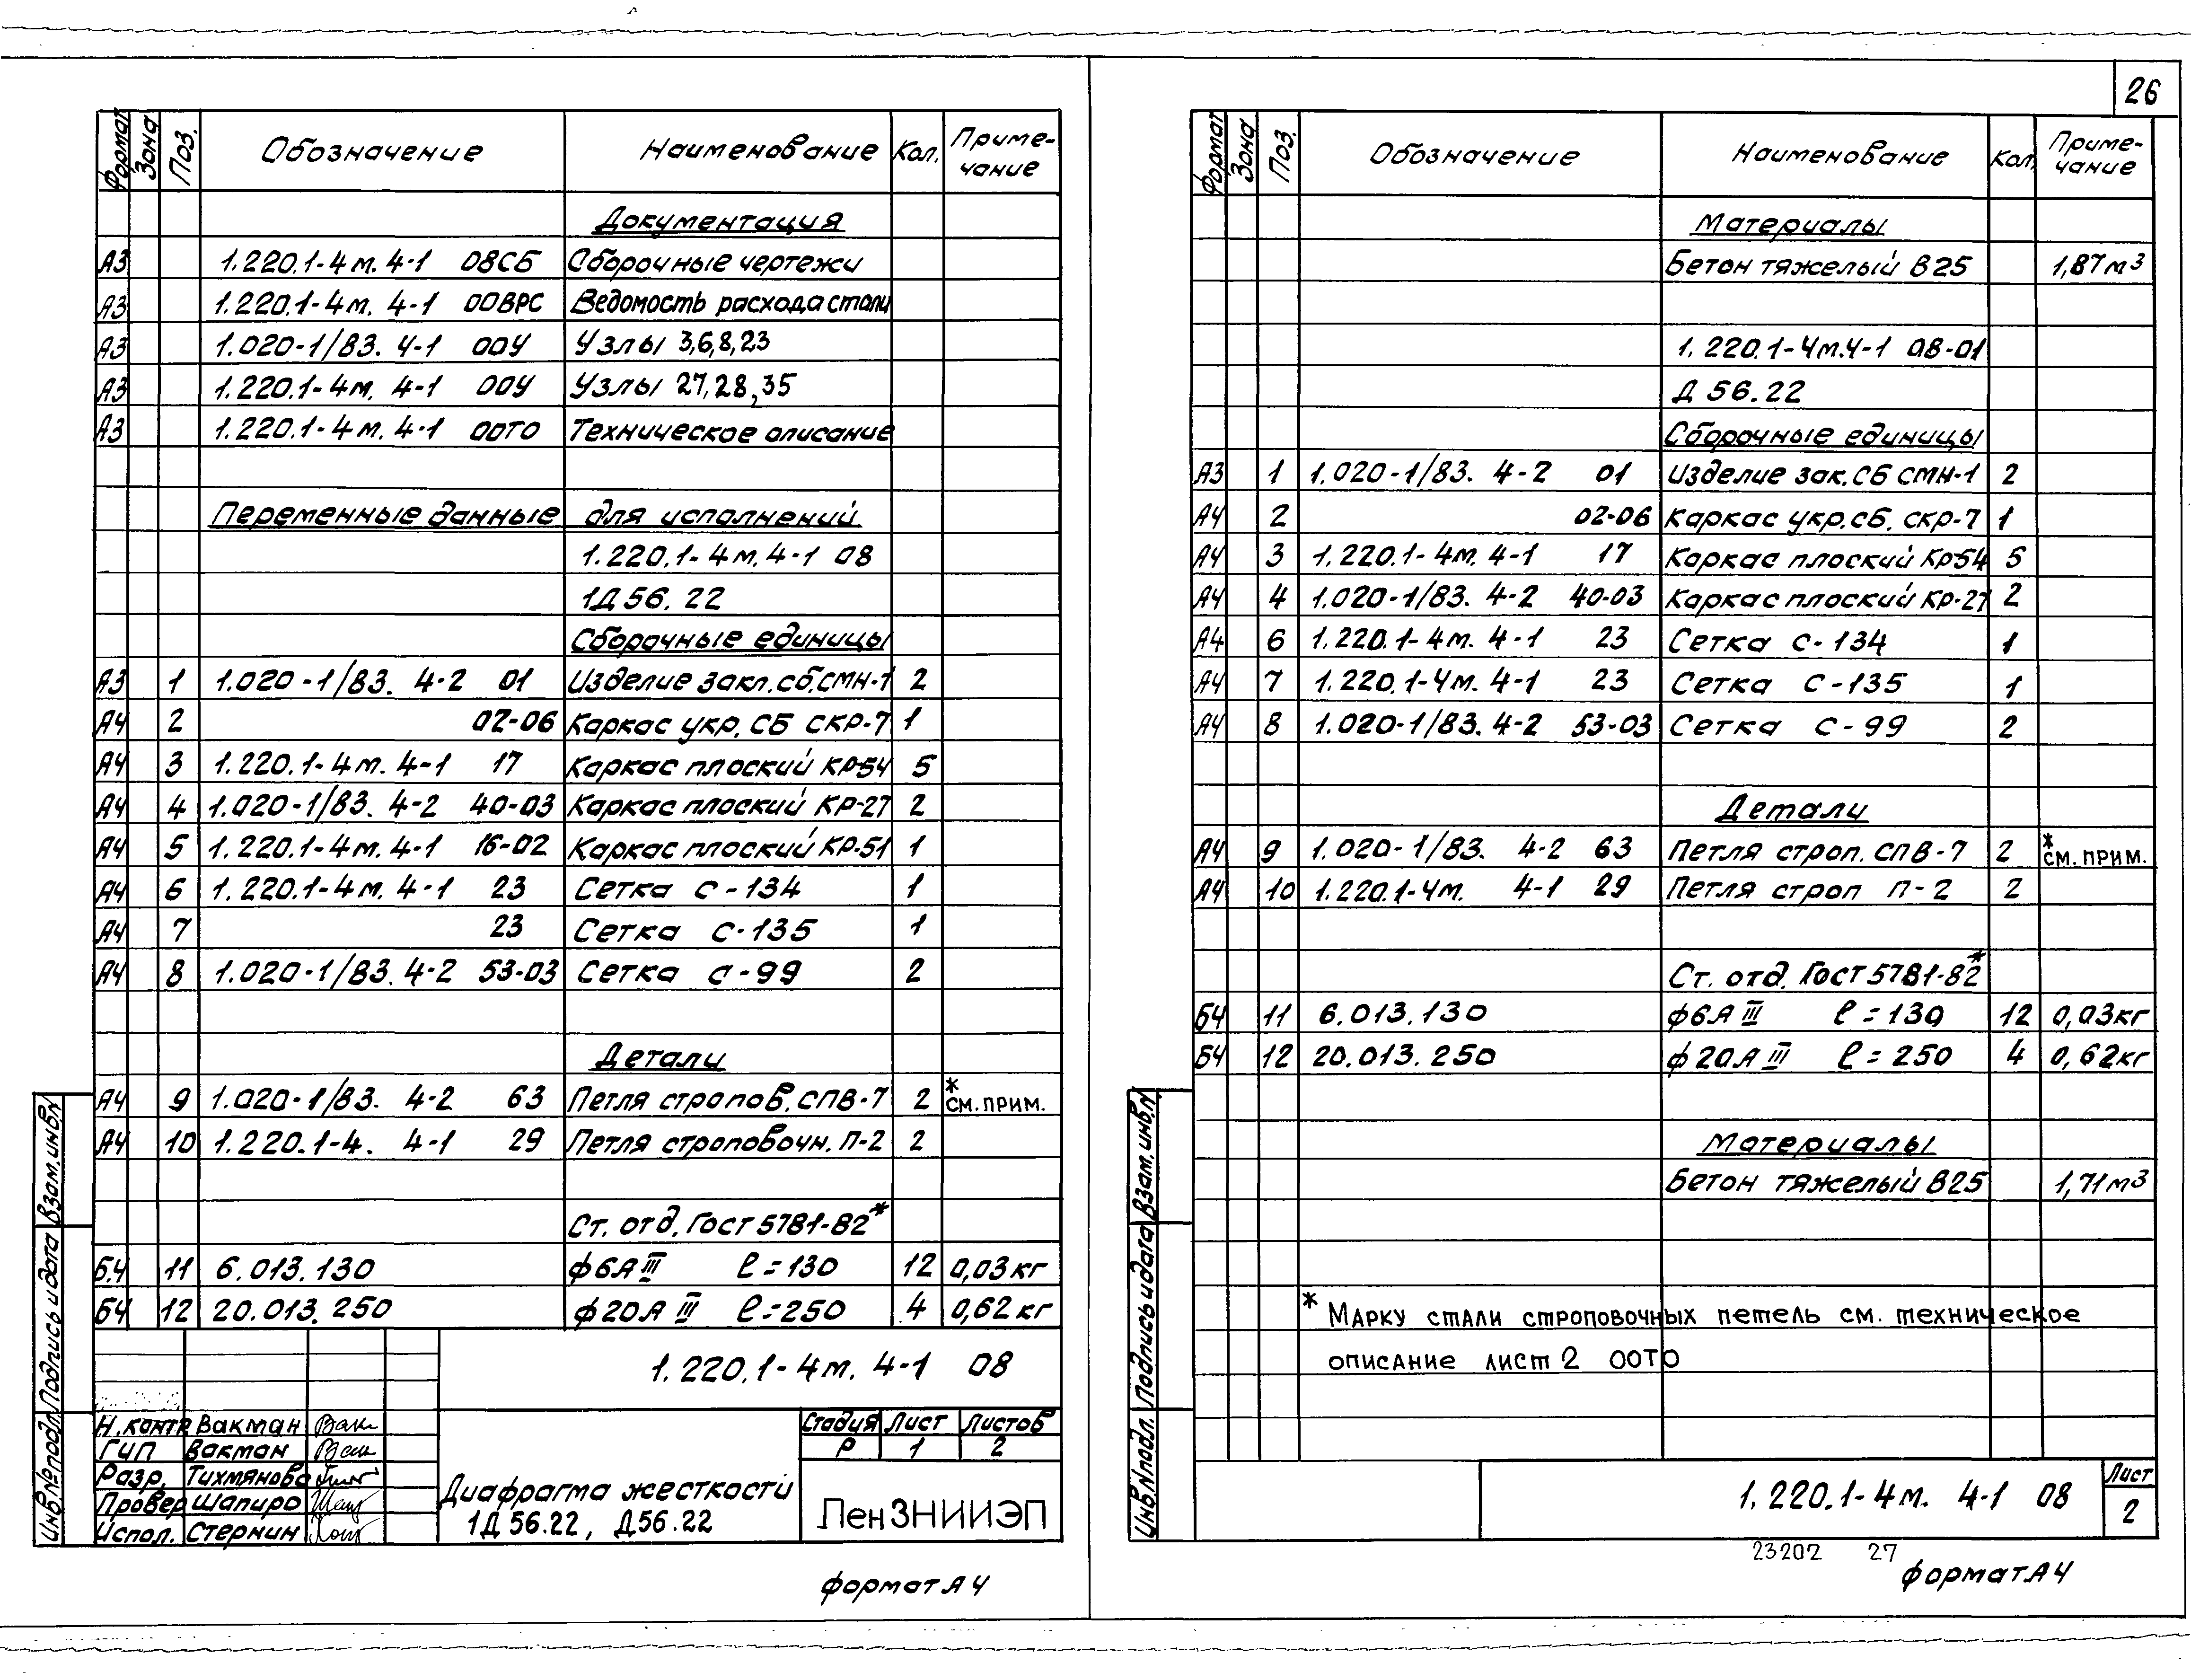 26
Формат Зона Поз. Обозначение Наименование Кол. Приме-
чание
Документация
А3 1.220.1-4м. 4-1 08СБ Сборочные чертежи
А3 1.220.1-4м. 4-1 00ВРС Ведомость расхода стали
А3 1.020-1/83. 4-1 00У Узлы 3,6,8,23
А3 1.220.1-4м. 4-1 00У Узлы 27,28,35
А3 1.220.1-4м. 4-1 00ТО Техническое описание
Переменные данные для исполнений
1.220.1-4м. 4-1 08
1Д 56.22
Сборочные единицы
А3 1 1.020-1/83. 4-2 01 Изделие закл.сб.СМН-1 2
А4 2 02-06 Каркас укр. СБ СКР-7 1
А4 3 1.220.1-4м. 4-1 17 Каркас плоский КР-54 5
А4 4 1.020-1/83. 4-2 40-03 Каркас плоский КР-27 2
А4 5 1.220.1-4м. 4-1 16-02 Каркас плоский КР-51 1
А4 6 1.220.1-4м. 4-1 23 Сетка С-134 1
А4 7 23 Сетка С-135 1
А4 8 1.020-1/83. 4-2 53-03 Сетка С-99 2
Детали
А4 9 1.020-1/83. 4-2 63 Петля стропов. СПВ-7 2 * см. прим.
А4 10 1.220.1-4. 4-1 29 Петля строповочн. П-2 2
Ст. отд. Гост 5781-82*
Б4 11 6.013.130 ф6АIII ℓ=130 12 0,03кг
Б4 12 20.013.250 ф20АIII ℓ=250 4 0,62кг
1.220.1-4м. 4-1 08
Н.контр Вакман
ГИП Вакман
Разр. Тихмянова
Провер Шапиро
Испол. Стернин
Диафрагма жесткости
1Д 56.22, Д56.22
Стадия Лист Листов
Р 1 2
ЛенЗНИИЭП
Инв.№подл. Подпись и дата Взам.инв.№
формат А4
Формат Зона Поз. Обозначение Наименование Кол. Приме-
чание
Материалы
Бетон тяжелый В25 1,87м³
1.220.1-4м.4-1 08-01
Д 56.22
Сборочные единицы
А3 1 1.020-1/83. 4-2 01 Изделие зак.СБ СМН-1 2
А4 2 02-06 Каркас укр.сб. СКР-7 1
А4 3 1.220.1-4м. 4-1 17 Каркас плоский КР-54 5
А4 4 1.020-1/83. 4-2 40-03 Каркас плоский КР-27 2
А4 6 1.220.1-4м. 4-1 23 Сетка С-134 1
А4 7 1.220.1-4м. 4-1 23 Сетка С-135 1
А4 8 1.020-1/83. 4-2 53-03 Сетка С-99 2
Детали
А4 9 1.020-1/83. 4-2 63 Петля строп. СПВ-7 2 * см. прим.
А4 10 1.220.1-4м. 4-1 29 Петля строп П-2 2
Ст. отд. Гост 5781-82*
Б4 11 6.013.130 ф6АIII ℓ=130 12 0,03кг
Б4 12 20.013.250 ф20АIII ℓ=250 4 0,62кг
Материалы
Бетон тяжелый В25 1,71м³
* Марку стали строповочных петель см. техническое
описание лист 2 00ТО
1.220.1-4м. 4-1 08
Лист
2
Инв.№подл. Подпись и дата Взам.инв.№
23202 27
формат А4